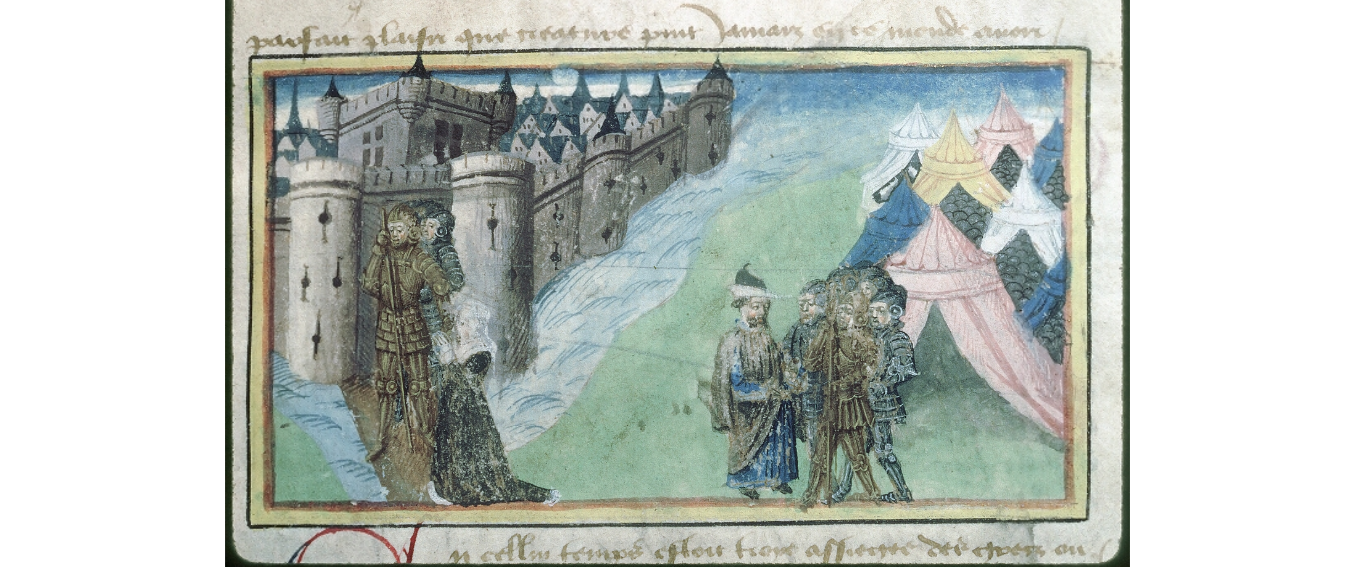 parfait plaisir que creature peut Jamais en ce monde avoir
En cellui temps estoit troye assiegee des grecz ou